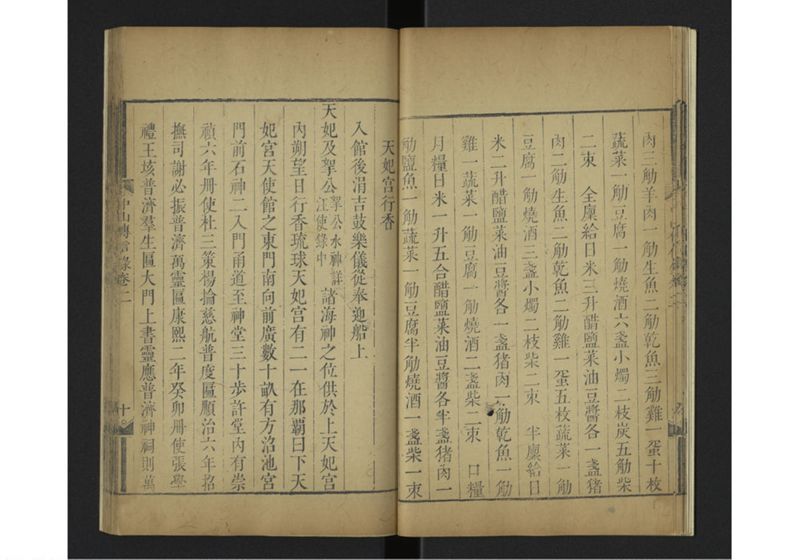 肉三觔羊肉一觔生魚二觔乾魚三觔雞一蛋十枚
蔬菜一觔豆腐一觔燒酒六盞小燭二枝炭五觔柴
二束　全廩給日米三升醋鹽菜油豆醬各一盞猪
肉二觔生魚二觔乾魚二觔雞一蛋五枚蔬菜一觔
豆腐一觔燒酒三盞小燭二枝柴二束　半廩給日
米二升醋鹽菜油豆醬各一盞猪肉一觔乾魚一觔
雞一蔬菜一觔豆腐一觔燒酒二盞柴二束　口糧
月糧日米一升五合醋鹽菜油豆醬各半盞猪肉一
觔鹽魚一觔蔬菜一觔豆腐半觔燒酒一盞柴一束
天妃宫行香
入館後涓吉鼓樂儀從奉迎船上
天妃及拏公拏公水神詳汪使錄中諸海神之位供於上天妃宫
內朔望日行香琉球天妃宫有二一在那覇曰下天
妃宫天使館之東門南向前廣數十畝有方沼池宫
門前石神二入門甬道至神堂三十步許堂內有崇
禎六年册使杜三策楊掄慈航普度匾順治六年招
撫司謝必振普濟萬靈匾康熙二年癸卯册使張學
禮王垓普濟羣生匾大門上書靈應普濟神祠則萬
中山傳信錄卷二
十